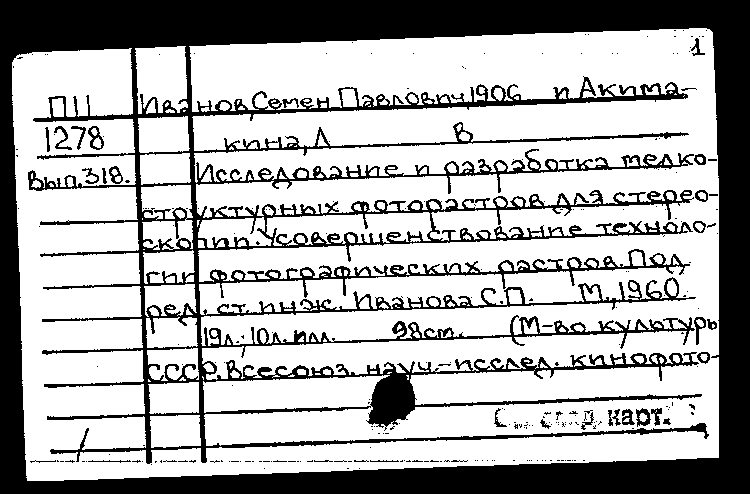 1
П11 Иванов, Семен Павлович, 1906 и Акима-
1278 кина, Л В
Вып.318. Исследование и разработка мелко-
структурных фоторастров для стерео-
скопии. Усовершенствование техноло-
гии фотографических растров. Под
ред. ст. инж. Иванова С.П. М., 1960.
19л.; 10л. илл. 98см. (М-во культуры
СССР. Всесоюз. науч.-исслед. кинофото-
след. карт.